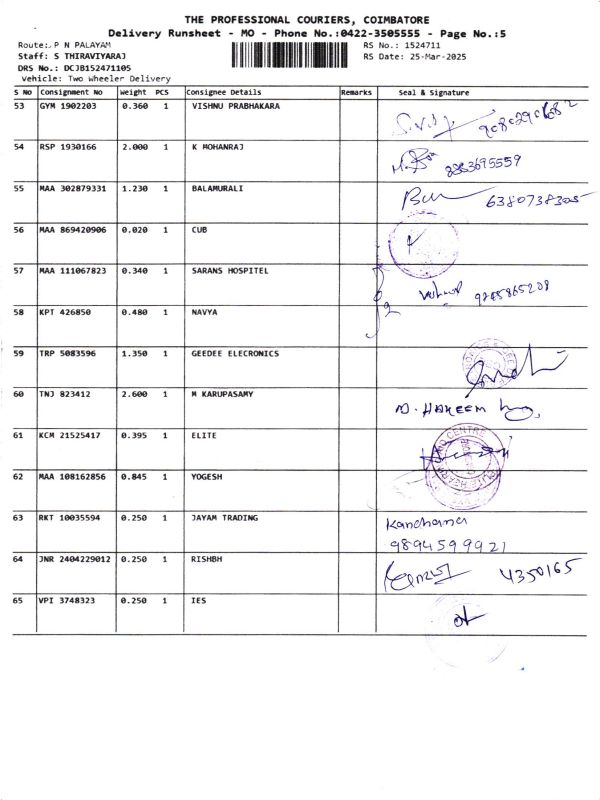 THE PROFESSIONAL COURIERS, COIMBATORE
Delivery Runsheet - MO - Phone No.:0422-3505555 - Page No.:5
Route: P N PALAYAM RS No.: 1524711
Staff: S THIRAVIYARAJ RS Date: 25-Mar-2025
DRS No.: DCJB152471105
Vehicle: Two Wheeler Delivery
S No Consignment No Weight PCS Consignee Details Remarks Seal & Signature
53 GYM 1902203 0.360 1 VISHNU PRABHAKARA
54 RSP 1930166 2.000 1 K MOHANRAJ 8883695559
55 MAA 302879331 1.230 1 BALAMURALI 6380738305
56 MAA 869420906 0.020 1 CUB
57 MAA 111067823 0.340 1 SARANS HOSPITEL
58 KPT 426850 0.480 1 NAVYA
59 TRP 5083596 1.350 1 GEEDEE ELECRONICS
60 TNJ 823412 2.600 1 M KARUPASAMY HAKEEM
61 KCM 21525417 0.395 1 ELITE
62 MAA 108162856 0.845 1 YOGESH
63 RKT 10035594 0.250 1 JAYAM TRADING Kanchana
9894599921
64 JNR 2404229012 0.250 1 RISHBH 4350165
65 VPI 3748323 0.250 1 IES